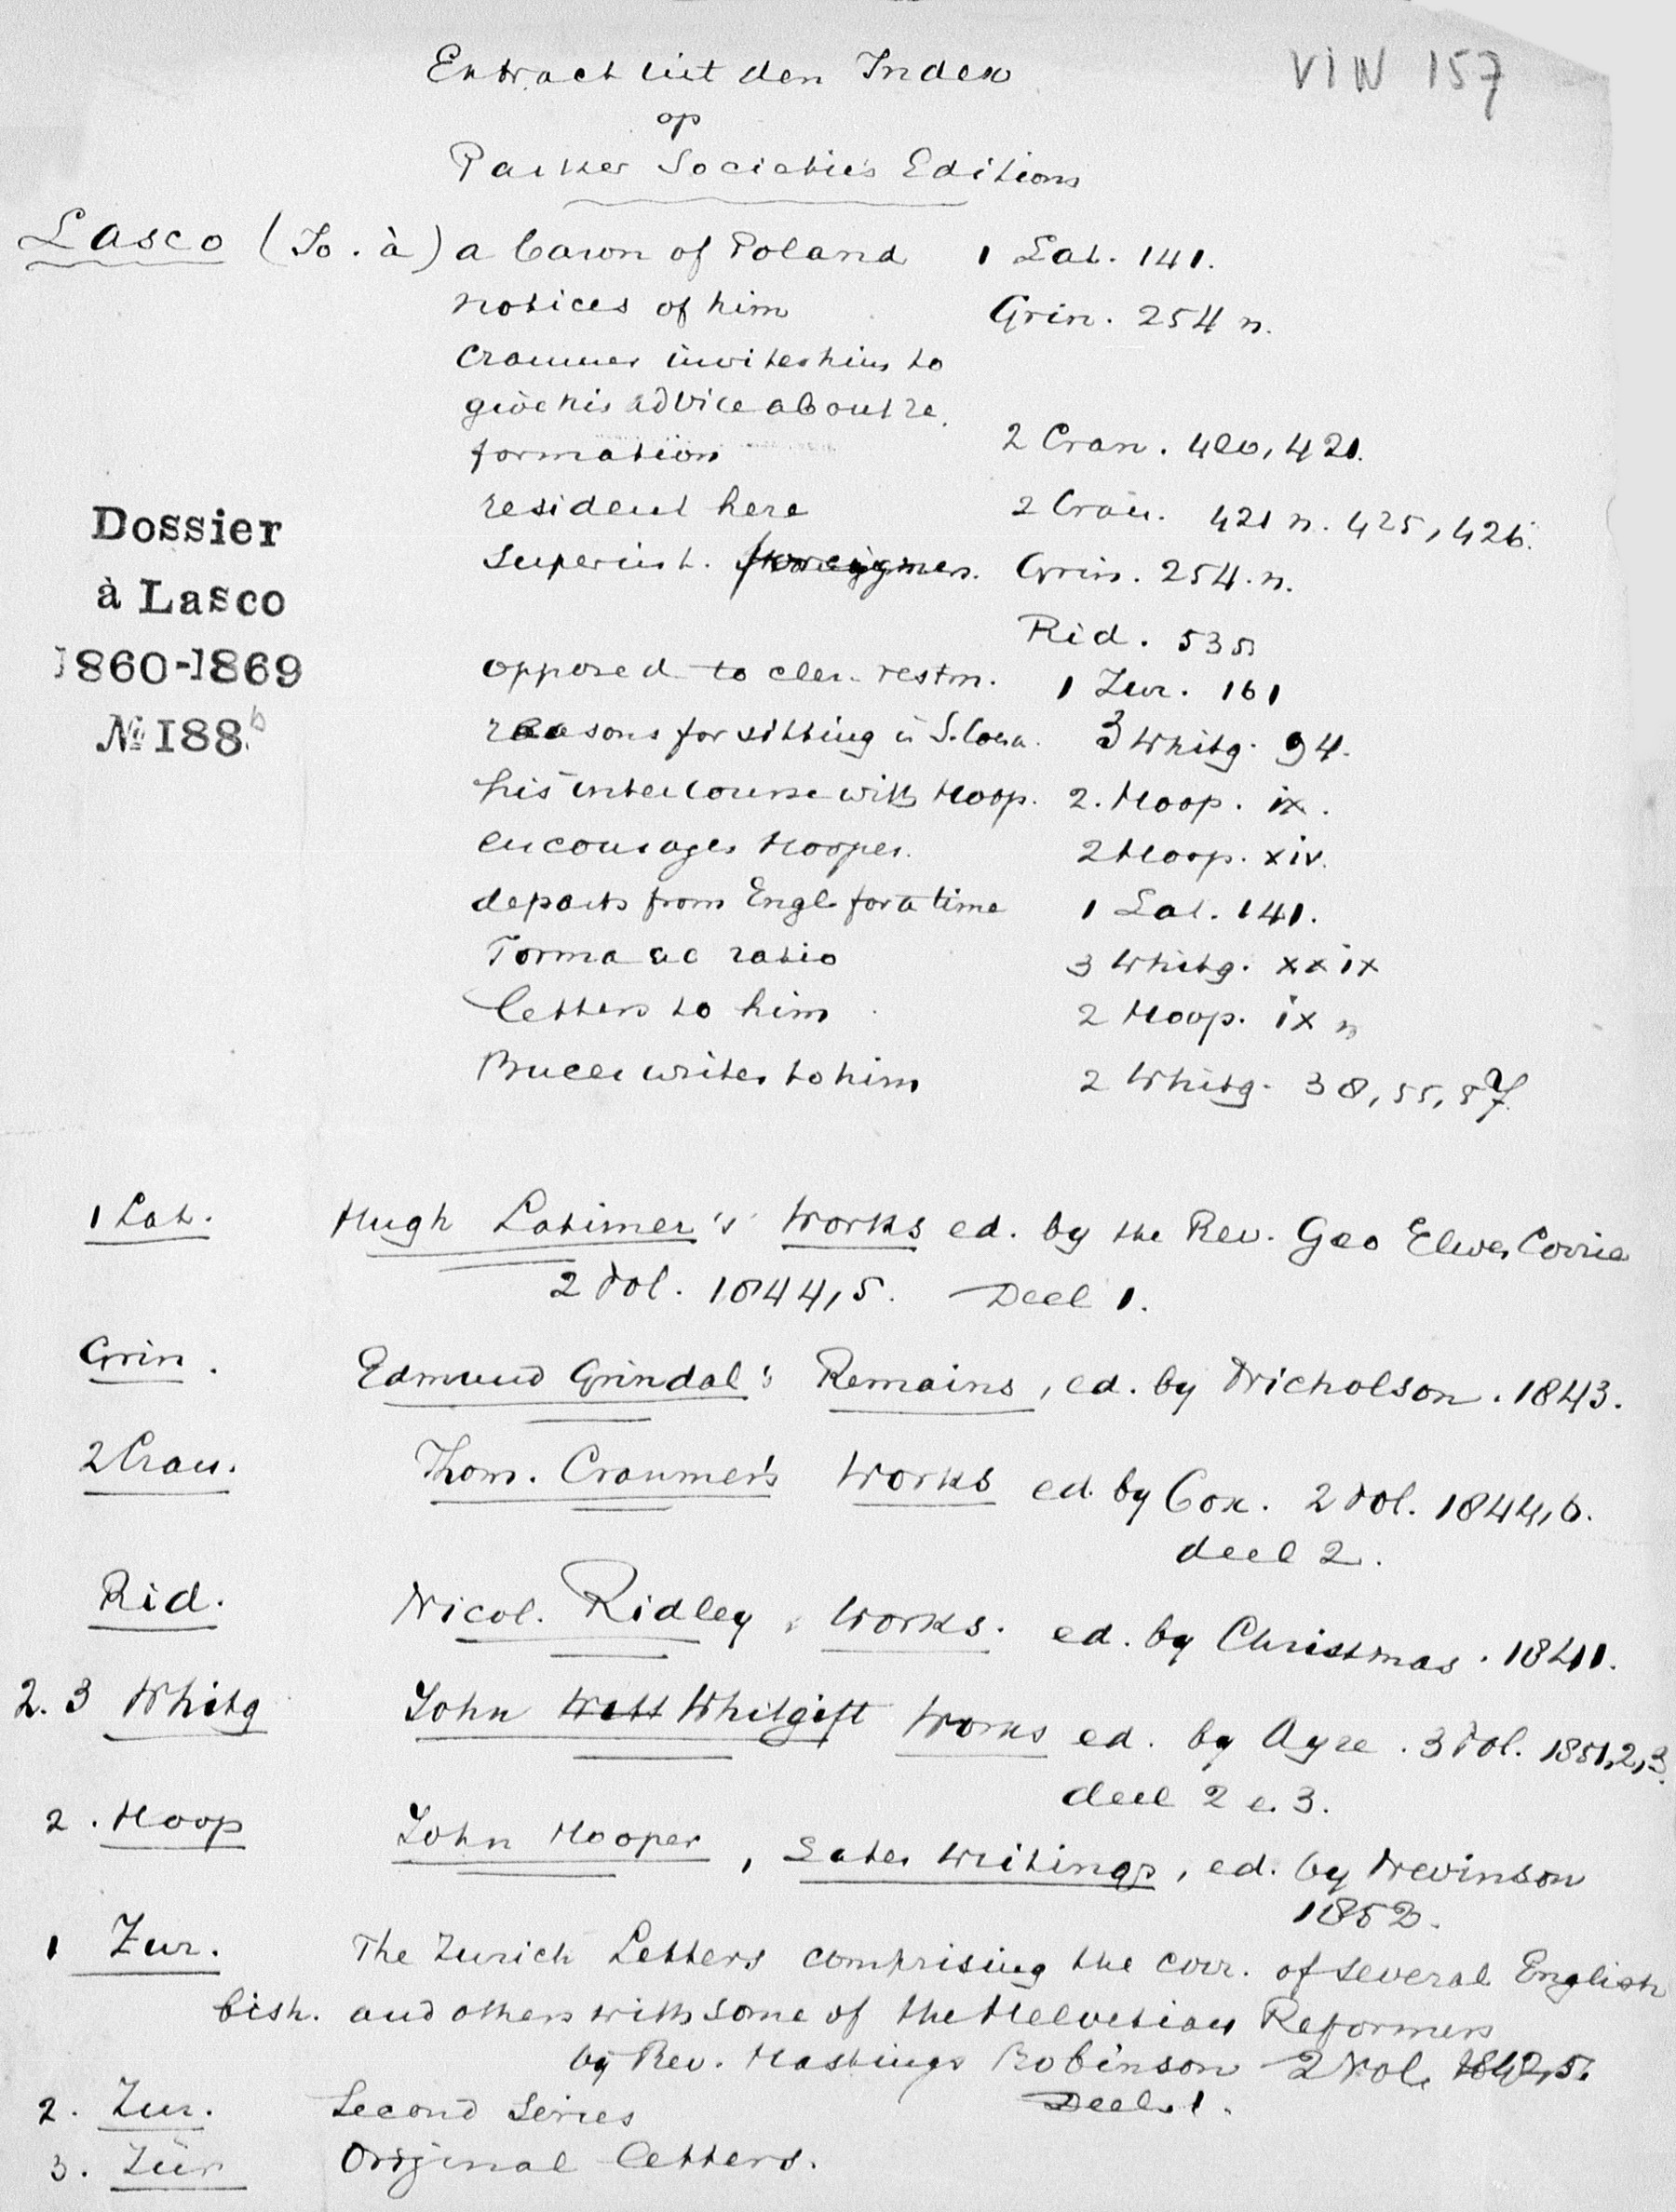 Extract uit den Index
VIN 157
op
Parker Societies Editions
Lasco (Jo. à) a baron of Poland 1 Lat. 141.
notices of him Grin. 254 n.
Cranmer invites him to
give his advice about re.
formation 2 Cran. 420, 421.
resident here 2 Cran. 421 n. 425, 426.
Superint. foreigners. Grin. 254. n.
Rid. 535
opposed to cler. vestm. 1 Zur. 161
reasons for sitting 3 Whitg. 94.
his intercourse with Hoop. 2. Hoop. ix.
encourages Hooper. 2 Hoop. xiv.
departs from Engl. for a time 1 Lat. 141.
Forma ac ratio 3 Whitg. xxix
letters to him 2 Hoop. ix n
Bucer writes to him 2 Whitg. 38, 55, 57.
Dossier
à Lasco
1860-1869
No 188.b
1 Lat. Hugh Latimer's Works ed. by the Rev. Geo Elwes Corrie
2 Vol. 1844,5. Deel 1.
Grin. Edmund Grindal's Remains, ed. by Nicholson. 1843.
2 Cran. Thom. Cranmer's Works ed. by Cox. 2 Vol. 1844,6.
deel 2.
Rid. Nicol. Ridley, Works. ed. by Christmas. 1841.
2. 3 Whitg John Whitgift Works ed. by Ayre. 3 Vol. 1851,2,3.
deel 2 e. 3.
2. Hoop John Hooper, Later Writings, ed. by Nevinson
1852.
1 Zur. The Zurich Letters comprising the corr. of several English
bish. and others with some of the Helvetian Reformers
by Rev. Hastings Robinson 2 Vol. 1842,5.
Deel. 1.
2. Zur. Second Series
3. Zür Original letters.